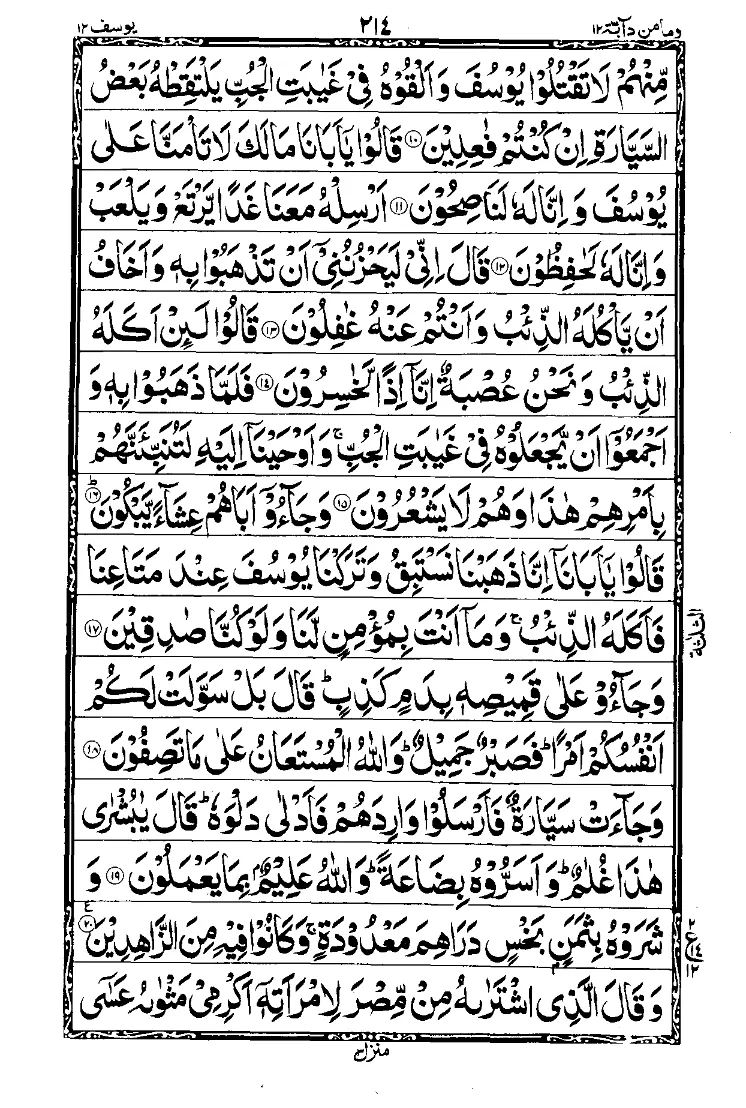 وما من دآبة ١٢
٢١٤
يوسف ١٢
مِّنْهُمْ لَا تَقْتُلُوْا يُوْسُفَ وَاَلْقُوْهُ فِيْ غَيٰبَتِ الْجُبِّ يَلْتَقِطْهُ بَعْضُ
السَّيَّارَةِ اِنْ كُنْتُمْ فٰعِلِيْنَ ۝١٠ قَالُوْا يٰٓاَبَانَا مَا لَكَ لَا تَأْمَنَّا عَلٰى
يُوْسُفَ وَاِنَّا لَهٗ لَنَاصِحُوْنَ ۝١١ اَرْسِلْهُ مَعَنَا غَدًا يَّرْتَعْ وَيَلْعَبْ
وَاِنَّا لَهٗ لَحٰفِظُوْنَ ۝١٢ قَالَ اِنِّيْ لَيَحْزُنُنِيْٓ اَنْ تَذْهَبُوْا بِهٖ وَاَخَافُ
اَنْ يَّاْكُلَهُ الذِّئْبُ وَاَنْتُمْ عَنْهُ غٰفِلُوْنَ ۝١٣ قَالُوْا لَىِٕنْ اَكَلَهُ
الذِّئْبُ وَنَحْنُ عُصْبَةٌ اِنَّآ اِذًا لَّخٰسِرُوْنَ ۝١٤ فَلَمَّا ذَهَبُوْا بِهٖ وَ
اَجْمَعُوْٓا اَنْ يَّجْعَلُوْهُ فِيْ غَيٰبَتِ الْجُبِّ ۚ وَاَوْحَيْنَآ اِلَيْهِ لَتُنَبِّئَنَّهُمْ
بِاَمْرِهِمْ هٰذَا وَهُمْ لَا يَشْعُرُوْنَ ۝١٥ وَجَآءُوْٓ اَبَاهُمْ عِشَآءً يَّبْكُوْنَ ۝١٦ ؕ
قَالُوْا يٰٓاَبَانَآ اِنَّا ذَهَبْنَا نَسْتَبِقُ وَتَرَكْنَا يُوْسُفَ عِنْدَ مَتَاعِنَا
فَاَكَلَهُ الذِّئْبُ ۚ وَمَآ اَنْتَ بِمُؤْمِنٍ لَّنَا وَلَوْ كُنَّا صٰدِقِيْنَ ۝١٧
الثلثة
وَجَآءُوْ عَلٰى قَمِيْصِهٖ بِدَمٍ كَذِبٍ ؕ قَالَ بَلْ سَوَّلَتْ لَكُمْ
اَنْفُسُكُمْ اَمْرًا ؕ فَصَبْرٌ جَمِيْلٌ ؕ وَاللّٰهُ الْمُسْتَعَانُ عَلٰى مَا تَصِفُوْنَ ۝١٨
وَجَآءَتْ سَيَّارَةٌ فَاَرْسَلُوْا وَارِدَهُمْ فَاَدْلٰى دَلْوَهٗ ؕ قَالَ يٰبُشْرٰى
هٰذَا غُلٰمٌ ؕ وَاَسَرُّوْهُ بِضَاعَةً ؕ وَاللّٰهُ عَلِيْمٌۢ بِمَا يَعْمَلُوْنَ ۝١٩ وَ
شَرَوْهُ بِثَمَنٍۭ بَخْسٍ دَرَاهِمَ مَعْدُوْدَةٍ ۚ وَكَانُوْا فِيْهِ مِنَ الزَّاهِدِيْنَ ۝٢٠ ع
٢
ع ١٤
١٢
وَقَالَ الَّذِى اشْتَرٰىهُ مِنْ مِّصْرَ لِامْرَاَتِهٖٓ اَكْرِمِيْ مَثْوٰىهُ عَسٰٓى
منزل ٣